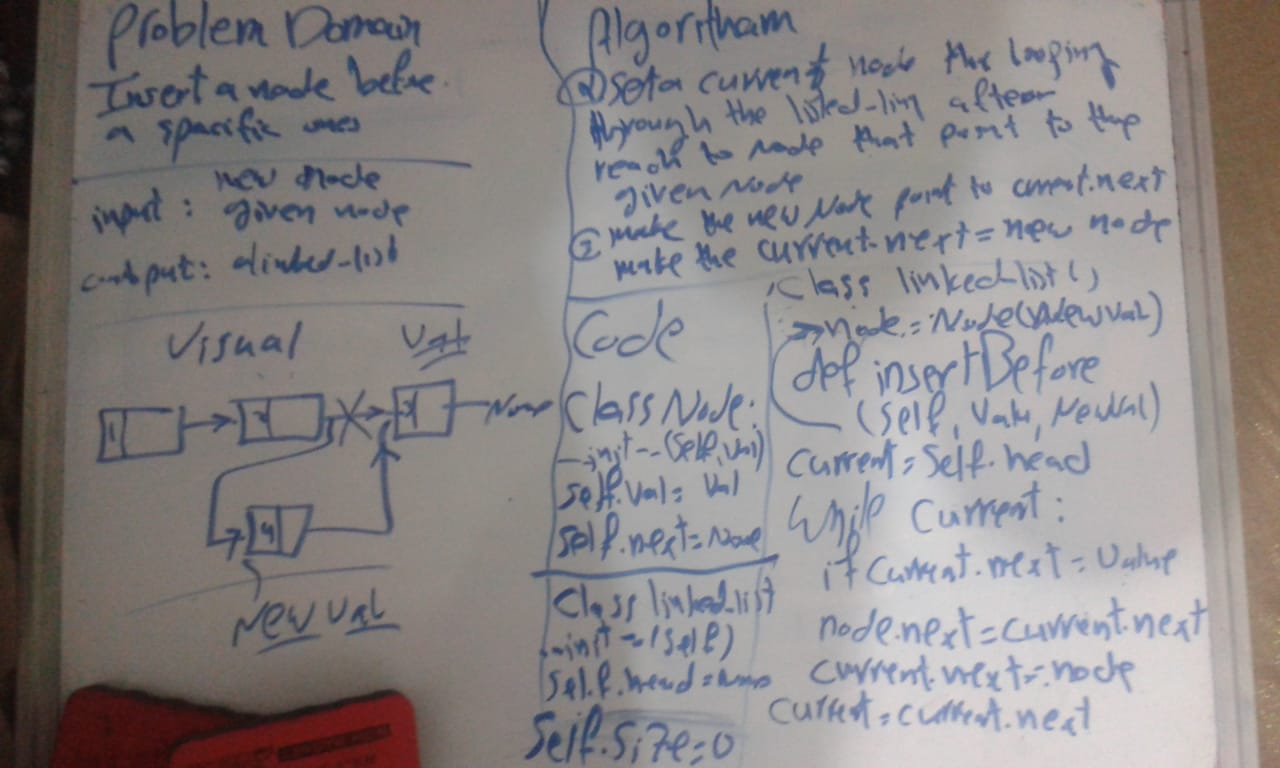 Problem Domain
Insert a node before
a spacific ones
input: new node
given node
output: a linked-list
Visual
Val
1
None
4
New Val
Algoritham
set a current node the looping
through the linked-lin after
reach to node that point to the
given Node
2 make the new Node point to current.next
make the current.next = new node
Code
Class Node:
--init--(self, val)
self.val = val
self.next = None
Class linked-list
--init--(self)
self.head = None
Self.Size = 0
Class linked-list()
node = Node(NewVal)
def insertBefore
(self, Value, NewVal)
Current = Self.head
While Current:
if Current.next = Value
node.next = current.next
current.next = node
current = current.next